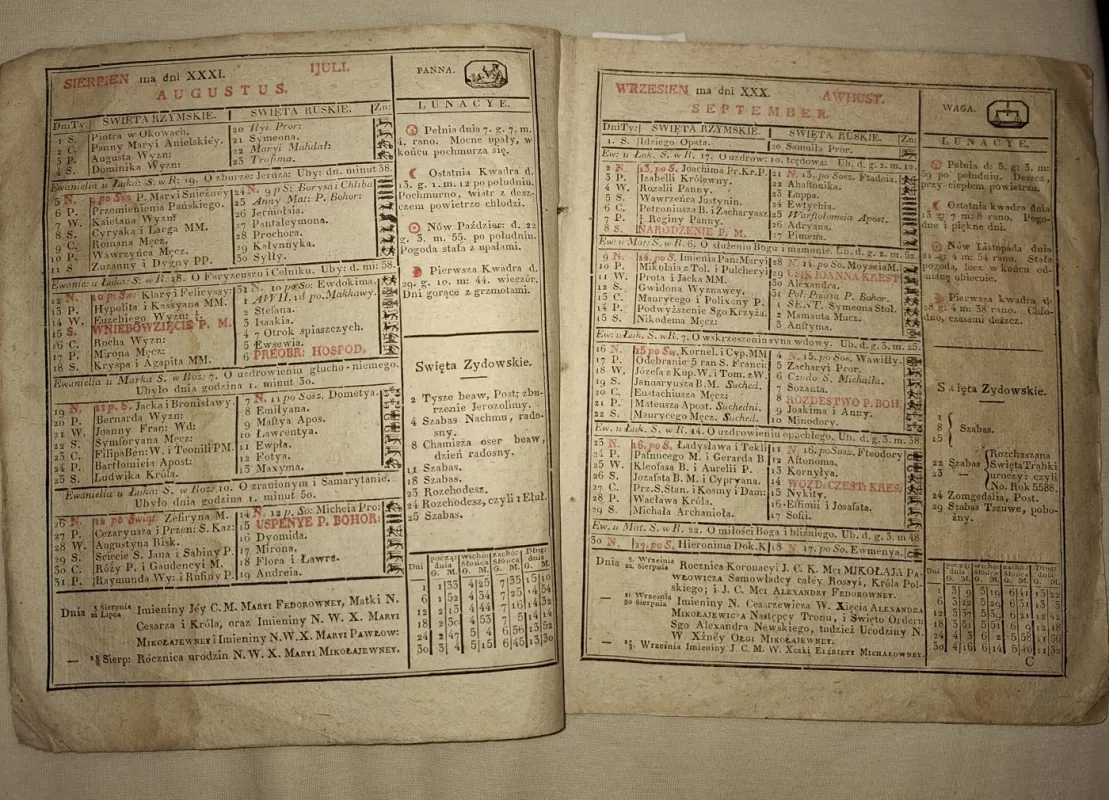 SIERPIEN ma dni XXXI. IJULI.
AUGUSTUS.
DniTy: SWIĘTA RZYMSKIE. SWIĘTA RUSKIE. Zn:
1 S. Piotra w Okowach. 20 Ilyi Pror:
2 C. Panny Maryi Anielskiéy. 21 Symeona.
3 P. Augusta Wyzn: 22 Maryi Mahdal:
4 S. Dominika Wyzn: 23 Trofima.
Ewanielia u Łuka: S. w R: 19. O zburze: Jeruza: Uby: dn. minut 38.
5 N. 9 po Sw. P. Maryi Snieżney 24 N. 9 p S: Borysa i Chliba
6 P. Przemienienia Pańskiego. 25 Anny Mat: P. Bohor:
7 W. Kaietana Wyzn: 26 Jermołaia.
8 S. Cyryaka i Larga MM. 27 Pantaleymona.
9 C. Romana Męcz. 28 Prochora.
10 P. Wawrzyńca Męcz: 29 Kałynnyka.
11 S Zuzanny i Dygny PP. 30 Syłły.
Ewania: u Łuka: S. w R: 18. O Faryzeuszu i Celniku. Uby: d. mi: 58.
12 N. 10 po: Sw: Klary i Felicyssy: 31 N. 10 po So: Ewdokima.
13 P. Hypolita i Kassyana MM. 1 AWH, 1d po. Makkawy.
14 W. Euzebiego Wyzn: 2 Stefana.
15 S. WNIEBOWZIĘCIE P. M. 3 Isaakia.
16 C. Rocha Wyzn: 4 7 Otrok spiaszczych.
17 P. Mirona Męcz: 5 Ewsewia.
18 S. Kryspa i Agapita MM. 6 PREOBR: HOSPOD.
Ewanielia u Marka S. w Roz: 7. O uzdrowieniu głucho-niemego.
Ubyło dnia godzina 1. minut 30.
19 N. 11 p. S. Jacka i Bronisławy. 7 N. 11 po Sos: Dometya.
20 P. Bernarda Wyzn: 8 Emiłyana.
21 W. Joanny Fran: Wd: 9 Maftya Apos.
22 S. Symforyana Męcz: 10 Ławrentya.
23 C. Filipa Ben: W. i Teonili PM. 11 Ewpła.
24 P. Bartłomieia Apost: 12 Fotya.
25 S. Ludwika Króla. 13 Maxyma.
Ewanielia u Łuka: S. w Roz: 10. O zranionym i Samarytanie.
Ubyło dnia godzina 1. minut 50.
26 N. 12 po Swiąt. Zefiryna M. 14 N. 12 p So: Micheia Pro:
27 P. Cezaryusza i Przen: S. Kaz: 15 USPENYE P. BOHOR:
28 W. Augustyna Bisk. 16 Dyomida.
29 S. Scięcie S. Jana i Sabiny P. 17 Mirona.
30 C. Róży P. i Gaudencyi M. 18 Flora i Ławra.
31 P. Raymunda Wy: i Rufiny P. 19 Andreia.
Dnia 3 Sierpnia 22 Lipca Imieniny Jéy C. M. MARYI FEDOROWNEY, Matki N.
Cesarza i Króla, oraz Imieniny N. W. X. MARYI
MIKOŁAJEWNEY i Imieniny N.W.X. MARYI PAWŁOW:
Sierp: Rócznica urodzin N. W. X. MARYI MIKOŁAJEWNEY.
PANNA.
LUNACYE.
Pełnia dnia 7. g. 7. m.
4. rano. Mocne upały, w
końcu pochmurza się.
Ostatnia Kwadra d.
13. g. 1. m. 12 po południu.
Pochmurno, wiatr z deszczem
powietrze chłodzi.
Nów Paździer: d. 22
g. 3. m. 55. po południu.
Pogoda stała z upałami.
Pierwsza Kwadra d.
29. g. 10. m: 44. wieczór.
Dni gorące z grzmotami.
Swięta Zydowskie.
2 Tysze beaw, Post; zbu-
rzenie Jerozolimy.
4 Szabas Nachmu, rado-
sny.
8 Chamisza oser beaw,
dzień radosny.
11 Szabas.
18 Szabas.
23 Rozchodesz.
24 Rozchodesz, czyli 1 Eluł.
25 Szabas.
Dni począ: dnia wschó: słońca zachó: słońca Dług: dnia
G. M. G. M. G. M. G. M.
1 1 33 4 25 7 35 15 10
6 1 52 4 34 7 25 14 54
12 2 13 4 44 7 16 14 32
18 2 30 4 53 7 5 14 14
24 2 47 5 4 6 56 13 52
30 3 4 5 15 6 45 13 30
WRZESIEN ma dni XXX. AWHUST.
SEPTEMBER.
DniTy: SWIĘTA RZYMSKIE. SWIĘTA RUSKIE. Zn:
1. S. Idziego Opata. 20 Samuiła Pror.
Ew. u Łuk. S. w R. 17. O uzdrow: 10. trędowa: Ub. d. g. 2. m. 12.
2 N. 13. po S. Joachima Pr. Kr. P. 21 N. 13. po Sosz. Ftadeia.
3 P. Izabelli Królewny. 22 Ahaftonika.
4 W. Rozalii Panny. 23 Łuppa.
5 S. Wawrzeńca Justynin. 24 Ewtychia.
6 C. Petroniusza B. i Zacharyasz 25 Warfłołomeia Apost.
7 P. Reginy Panny. 26 Adryana.
8 S. NARODZENIE P. M. 27 Pimena.
Ew: u Mat: S. w R. 6. O służeniu Bogu i mamonie. Ub. d. g. 2. m. 52.
9 N. 14. po S. Imienia Pan: Maryi 28 N. 14. po So. Moyseia M.
10 P. Mikołaia z Tol. i Pulcheryi 29 USIK: IOANNA KREST
11 W. Prota i Jacka MM. 30 Alexandra.
12 S. Gwidona Wyznawcy. 31 Poł: Poiasa P. Bohor.
13 C. Maurycego i Polixeny P. 1 SENT. Symeona Stoł.
14 P. Podwyższenie Sgo Krzyża. 2 Mamanta Mucz.
15 S. Nikodema Męcz: 3 Anftyma.
Ew: u Łuk. S. w R. 7. O wskrzeszeniu syna wdowy. Ub. d. g. 3. m. 25.
16 N. 15 po Sw. Kornel. i Cyp. MM 4 N. 15. po Sos. Wawiłły.
17 P. Odebranie 5 ran S. Franci: 5 Zacharyi Pror.
18 W. Józefa z Kup. W. i Tom. z W. 6 Czudo S. Michaiła.
19 S. Januaryusza B. M. Suched. 7 Sozanta.
20 C. Eustachiusza Męcz: 8 ROZDESTWO P. BOH.
21 P. Mateusza Apost. Suchedni. 9 Joakima i Anny.
22 S. Maurycego Męcz. Suched. 10 Minodory.
Ew. u Łuk. S. w R. 14. O uzdrowieniu opuchłego. Ub. d. g. 3. m. 38.
23 N. 16. po S. Ładysława i Tekli 11 N. 16. po Sosz. Fteodory
24 P. Pafnucego M. i Gerarda B. 12 Aftonoma.
25 W. Kleofasa B. i Aurelii P. 13 Kornyłya.
26 S. Jozafata B. M. i Cypryana. 14 WOZD: CZEST: KRES.
27 C. Prz. S. Stan. i Kosmy i Dam: 15 Nykity.
28 P. Wacława Króla. 16 Effimii i Josafata.
29 S. Michała Archanioła. 17 Sofii.
Ew. u Mat. S. w R. 22. O miłości Boga i bliźniego. Ub. d. g. 3. m 48.
30 N. 17. po S. Hieronima Dok. K. 18 N. 17. po So. Ewmenya.
Dnia 3. Września 22. Sierpnia Rocznica Koronacyi J. C. K. Mci MIKOŁAJA PA-
WŁOWICZA Samowładcy całéy Rossyi, Króla Pol-
skiego; i J. C. Mci ALEXANDRY FEDOROWNEY.
11 Września 30 Sierpnia Imieniny N. Cesarzewicza W. Xięcia ALEXANDRA
MIKOŁAJEWICZA Następcy Tronu, i Swięto Orderu
Sgo Alexandra Newskiego, tudzież Urodziny N.
W. Xżnéy OLGI MIKOŁAJEWNEY.
Września Imieniny J. C. M. W. Xczki ELŻBIETY MICHAŁOWNEY.
WAGA.
LUNACYE.
Pełnia d: 5. g: 3. m:
39 po południu. Deszcz,
przy ciepłem powietrzu.
Ostatnia kwadra dnia
13 g: 7 m: 8 rano. Pogo-
dne i piękne dni.
Nów Listopada dnia
21 g: 4 m: 54 rano. Stała
pogoda, lecz w końcu od-
mianę obiecuie.
Pierwsza kwadra d:
28 g: 4 m: 38 rano. Chło-
dno, czasami deszcz.
Swięta Zydowskie.
1
8 Szabas.
15
22 Szabas Rozchaszana Swięta Trąbki uroczy: czyli No. Rok 5588.
24 Zomgedalia, Post.
29 Szabas Tszuwe, pobo-
żny.
Dni począ: dnia wschó: słońca zachó: słońca Dług: dnia
G. M. G. M. G. M. G. M.
1 3 9 5 19 6 41 13 22
6 3 22 5 29 6 31 13 2
12 3 37 5 40
18 3 51 5 51 6 9 12 18
24 4 3 6 2 5 58 11 56
30 4 16 6 14 5 46 11 32
C